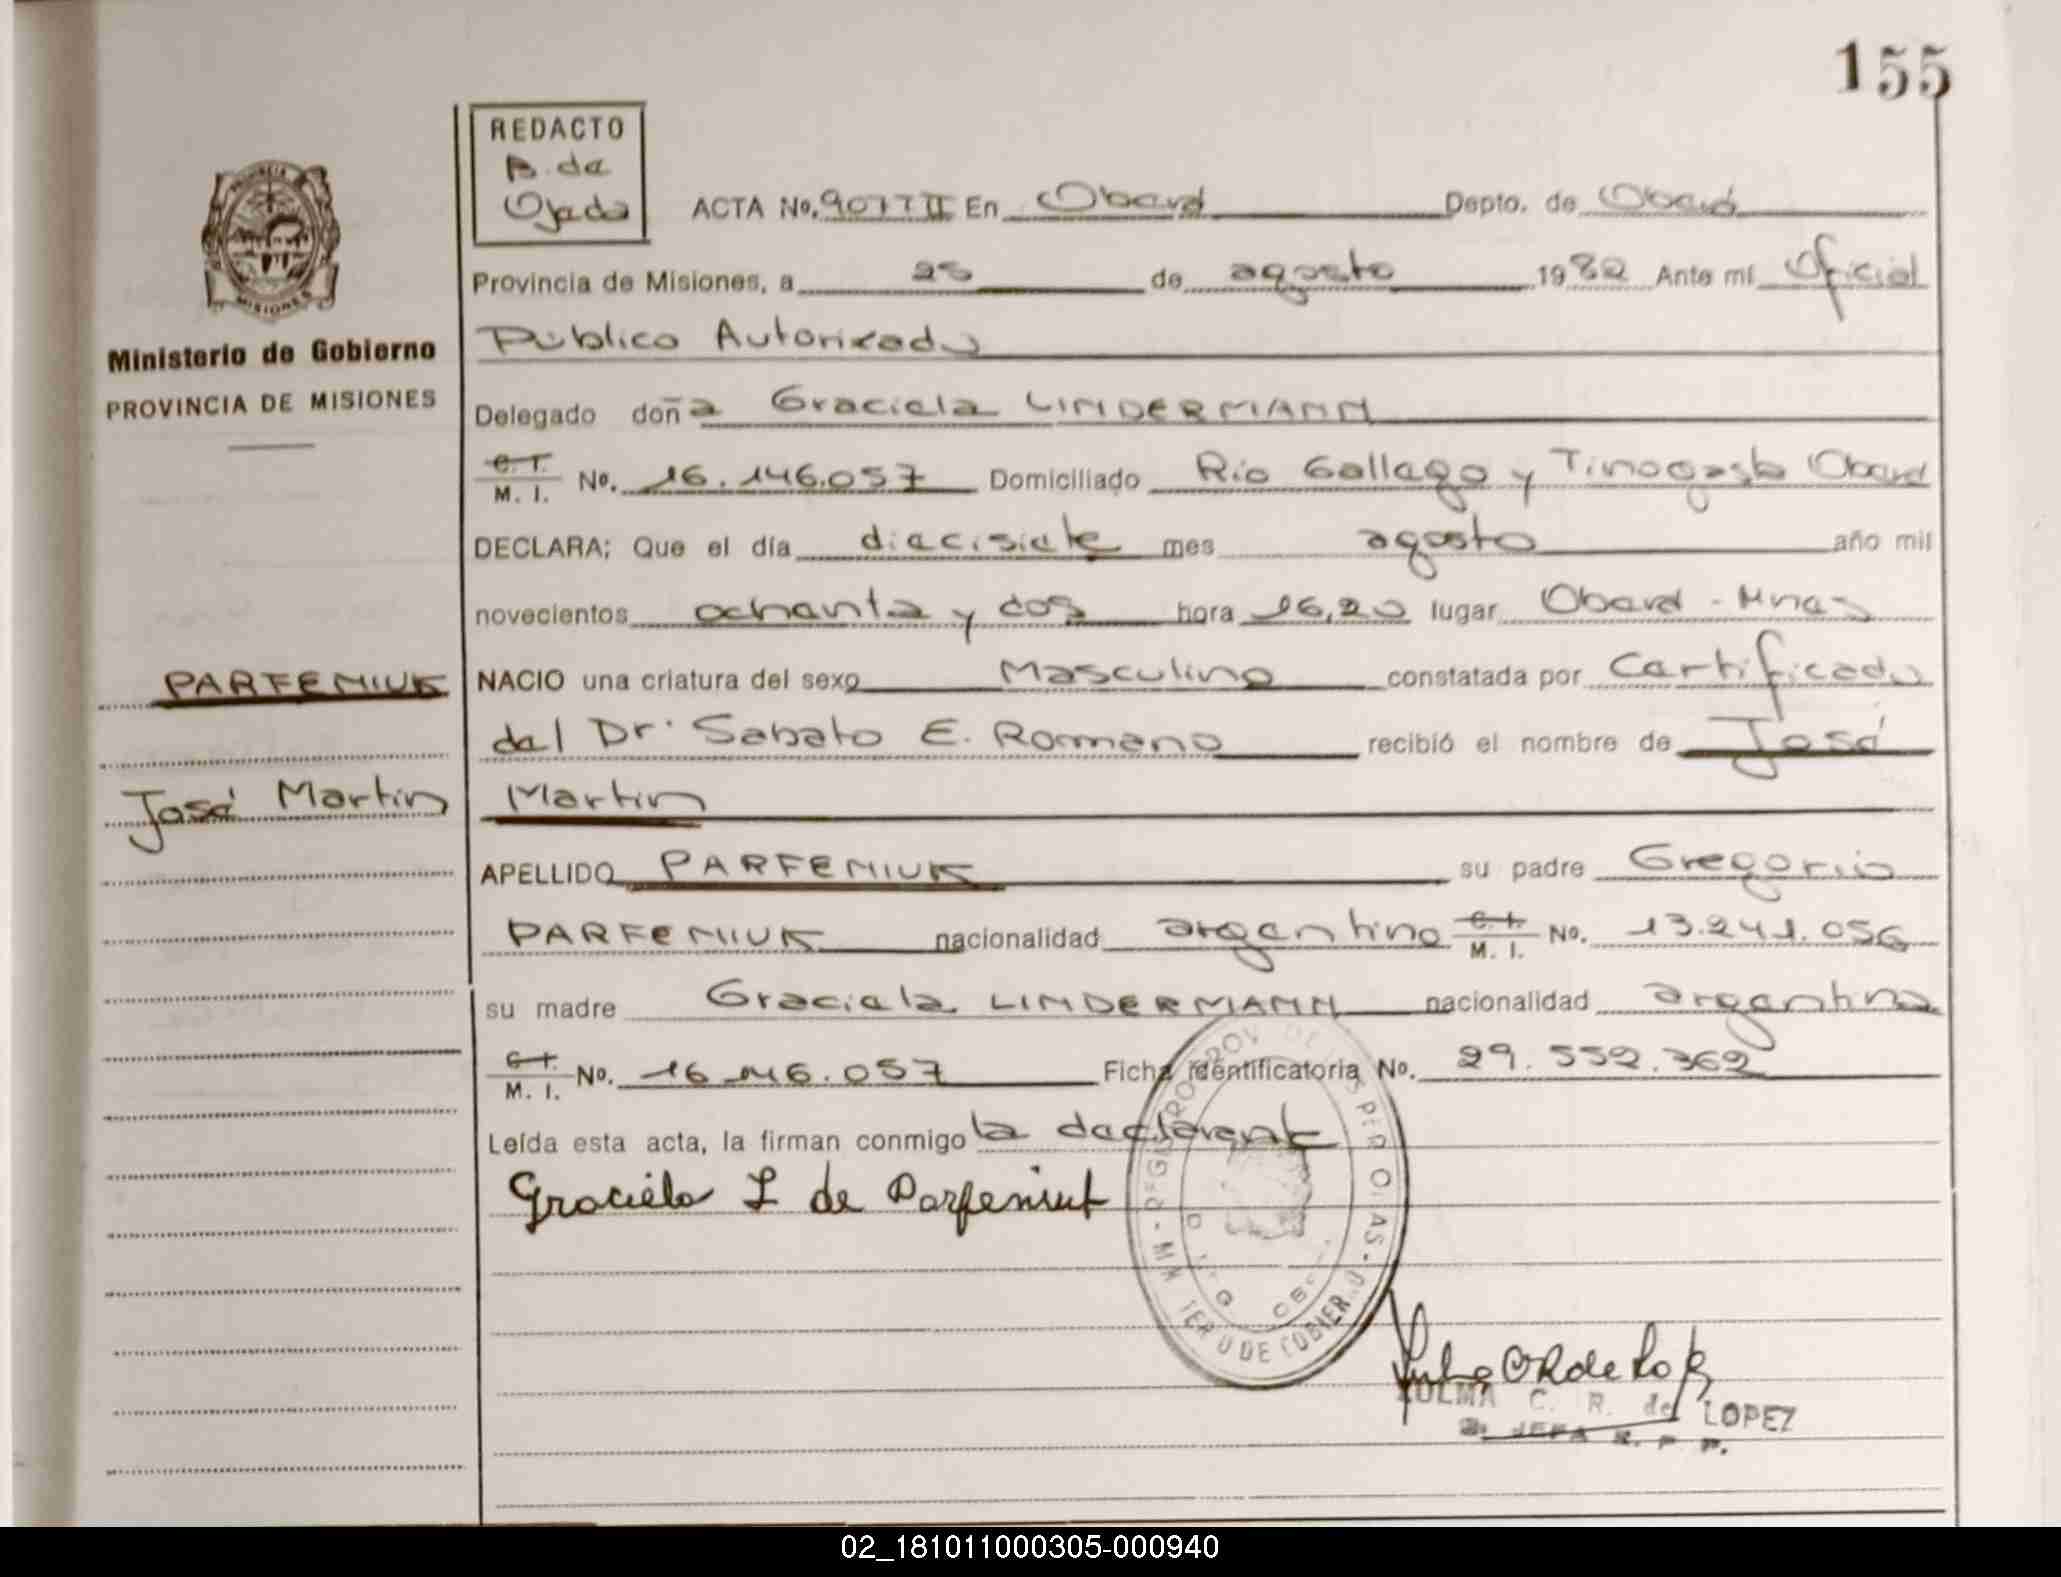 155
REDACTO
B. de
Ojeda
ACTA No. 907 T II En Oberá Depto. de Oberá
Provincia de Misiones, a 25 de agosto 1982 Ante mí Oficial
Público Autorizado
Delegado doña Graciela LINDERMANN
C. I. M. I. No. 16.146.057 Domiciliado Río Gallego y Tinogasta Oberá
DECLARA; Que el día diecisiete mes agosto año mil
novecientos ochenta y dos hora 16,20 lugar Oberá - Mnes
NACIO una criatura del sexo Masculino constatada por Certificado
del Dr. Sabato E. Romano recibió el nombre de José
Martin
APELLIDO PARFENIUK su padre Gregorio
PARFENIUK nacionalidad argentino C. I. M. I. No. 13.241.056
su madre Graciela LINDERMANN nacionalidad argentina
C. I. M. I. No. 16.146.057 Ficha identificatoria No. 29.552.362
Leída esta acta, la firman conmigo la declarante
Graciela L de Parfeniuk
ZULMA C. R. de LOPEZ
JEFA R. P. P.
MISIONES
Ministerio de Gobierno
PROVINCIA DE MISIONES
PARFENIUK
José Martin
02_181011000305-000940